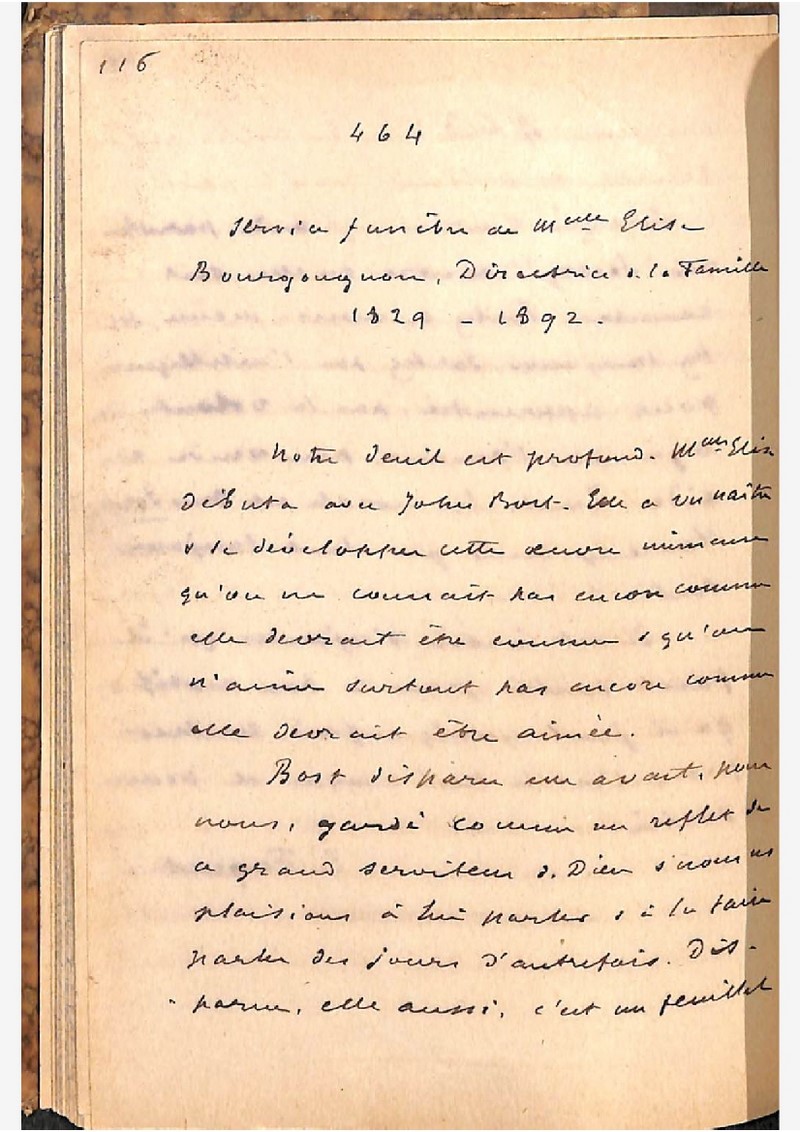 116
464
Service funèbre de Melle Elise
Bourgougnon, Directrice de la Famille
1829 - 1892.
Notre deuil est profond. Melle Elise
débuta avec John Bost. Elle a vu naître
& se développer cette œuvre immense
qu'on ne connait pas encore comme
elle devrait être connue & qu'on
n'aime surtout pas encore comme
elle devrait être aimée.
Bost disparu elle avait, pour
nous, gardé comme un reflet de
ce grand serviteur de Dieu & nous nous
plaisions à lui parler & à la faire
parler des jours d'autrefois. Dis-
parue, elle aussi, c'est un feuillet